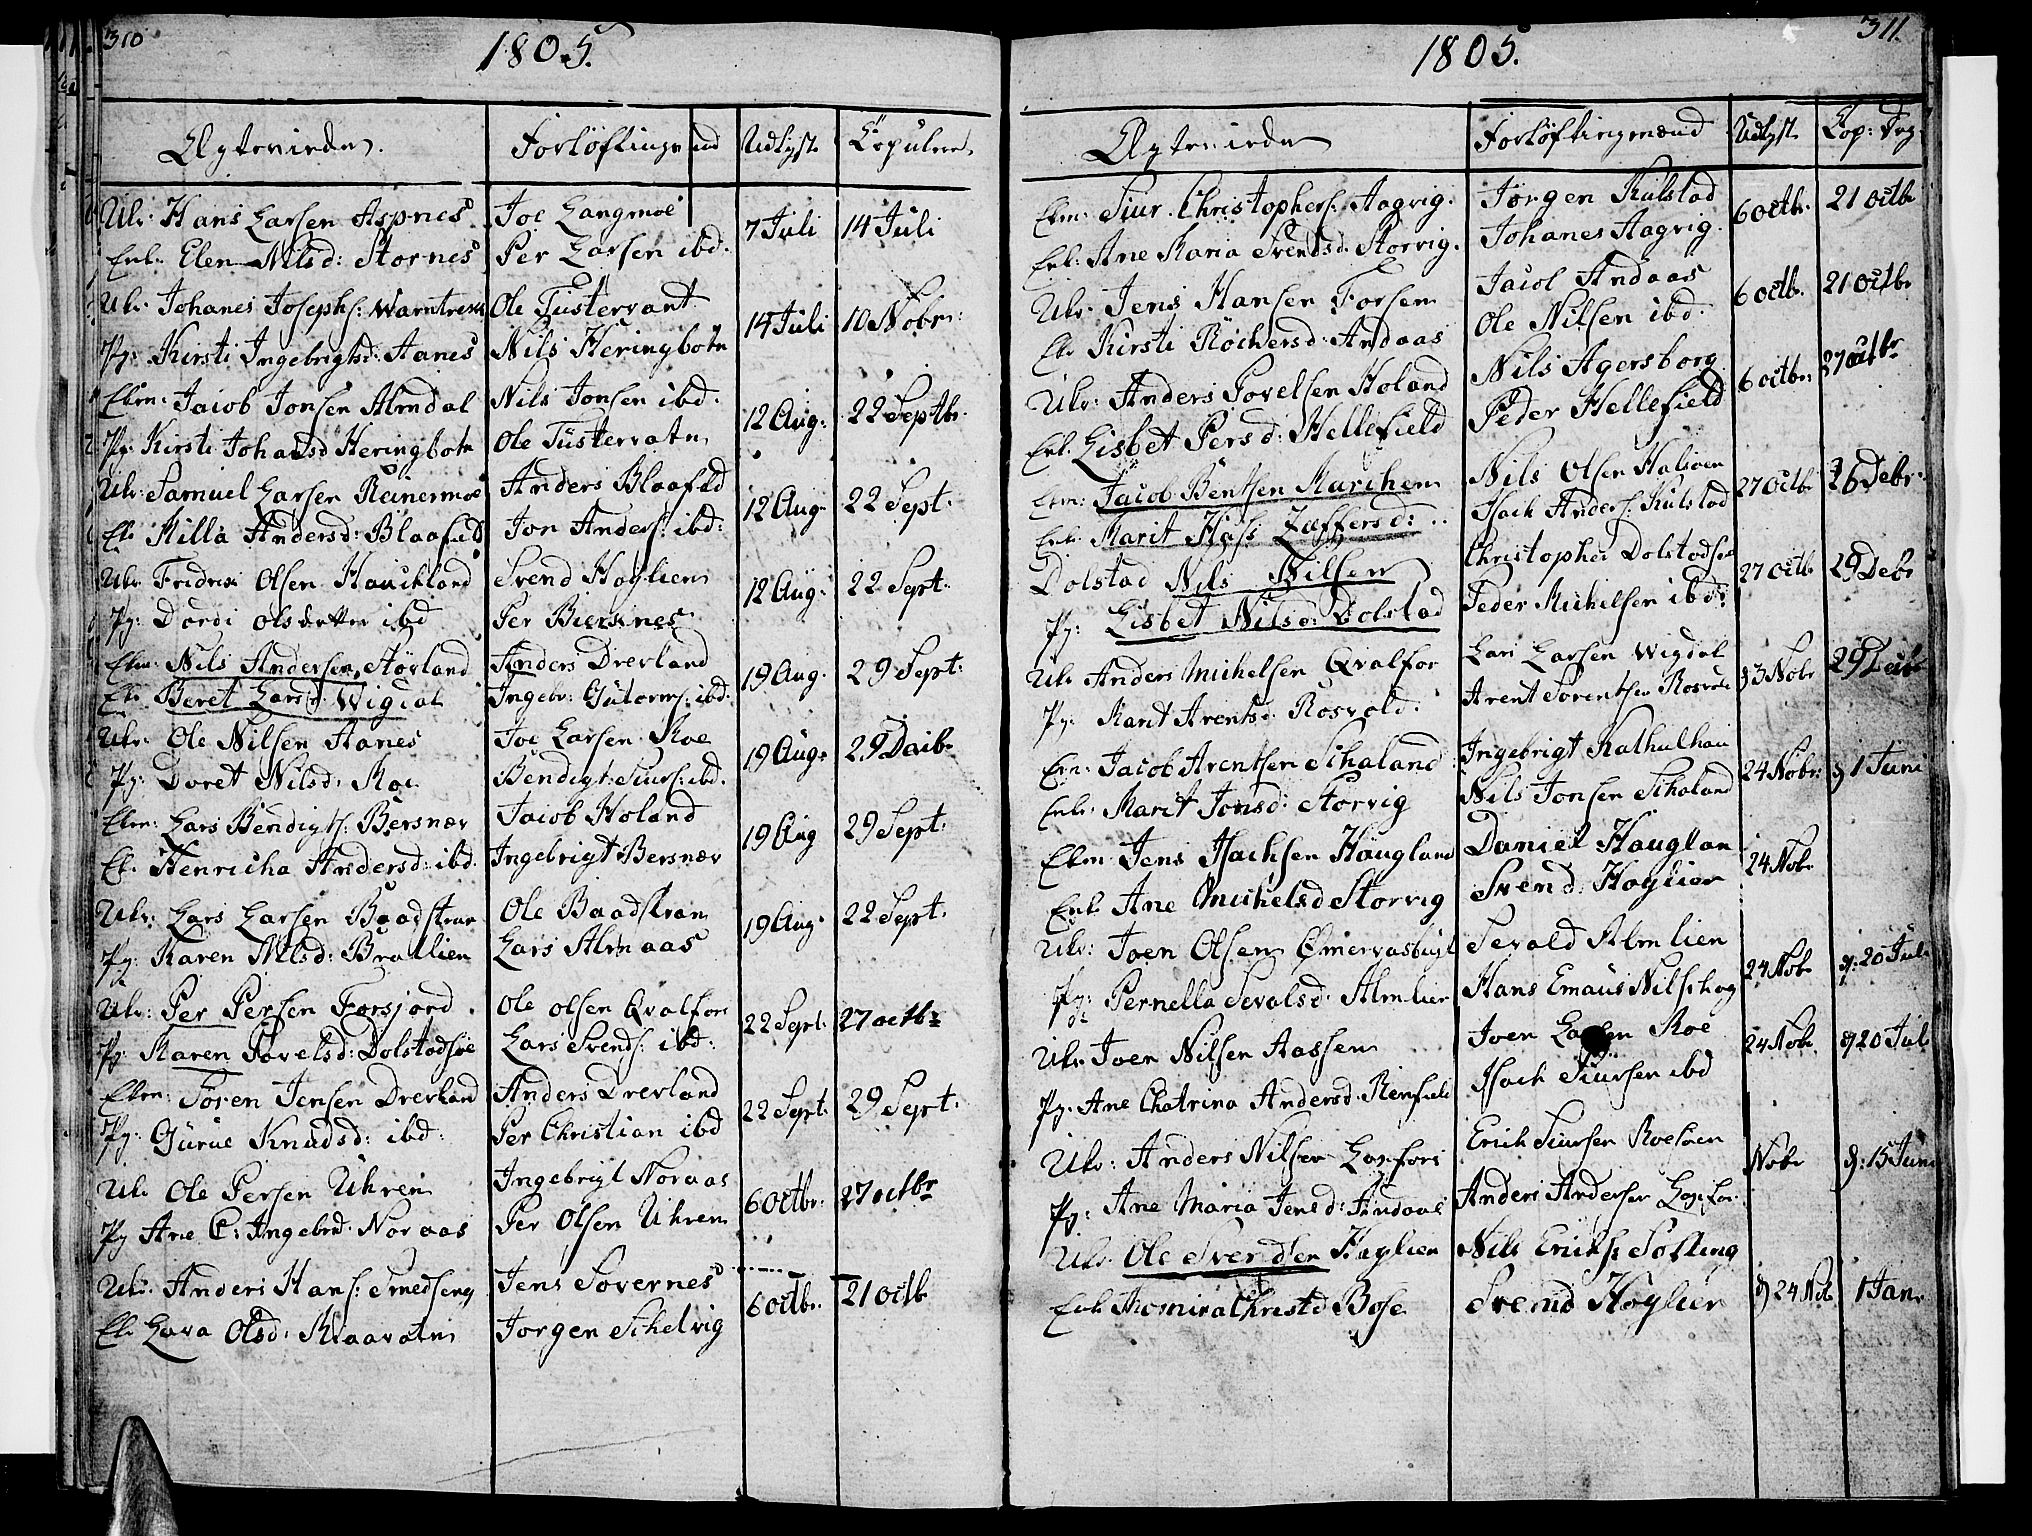 310
1805.
Ægteviede. Forløftingsmænd Udlyst Copulered
Ukr: Hans Larsen Aspnes Joe Langmoe 7 Juli 14 Juli
Enk: Elen Nilsd: Stornes Per Larsen ibd:
Ukr Johanes Josephs: Warntresk Ole Tustervant 14 Juli 10 Nobr:
Pg: Kirsti Ingebrigtsd: Aanes Nils Heringbotn
Ekm: Jacob Jonsen Almdal Nils Jonsen ibd: 12 Aug: 22 Septbr.
Pg: Kirsti Johansd Heringbotn Ole Tustervatn
Ukr: Samuel Larsen Reinermoe Anders Blaafield 12 Aug: 22 Sept:
Ek Killa Andersd: Blaafield Jon Anders: ibd:
Ukr Fredrik Olsen Hauchland Svend Høglien 12 Aug: 22 Sept:
Pg: Dordi Olsdatter ibd Per Biersnes
Ekm: Nils Andersen Størland Anders Drevland 19 Aug. 29 Sept:
Ek Beret Larsd: Wigdal Ingebr: Gutorms: ibd:
Ukr. Ole Nilsen Aanes Joe Larsen Roe 19 Aug: 29 Decbr
Pg: Doret Nilsd: Roe Bendigt Siurs: ibd.
Ekm: Lars Bendigts: Bersnær Jacob Holand 19 Aug 29 Sept:
Ek. Henricha Andersd: ibd. Ingebrigt Bersnær
Ukr: Lars Larsen Baadstran Ole Baadstran 19 Aug 22 Sept.
Pg: Karen Nilsd: Bratlien Lars Almaas
Ukr: Per Persen Forsjord. Ole Olsen Qvalfors 22 Sept: 27 Octbr
Pg: Karen Povelsd: Dolstadsøe Lars Svends: ibd:
Ekm: Søren Jensen Drevland Anders Drevland 22 Sept: 29 Sept:
Pg: Gurue Knudsd: ibd: Per Christian ibd
Uk. Ole Persen Uhren Ingebrigt Noraas 6 Octbr: 27 Octbr
Pg Ane C: Ingebrd: Noraas Per Olsen Uhren
Ukr: Anders Hans: Smedseng Jens Søvernes 6 Octbr. 21 Octb
Ek Lava Olsd: Klaavatn Jorgen Schelvig
311.
1805.
Ægteviede Forløftingsmænd Udlyst Cop: Dag
Ekm: Siur Christophers: Aagvig. Jørgen Kulstad 6 Octbr. 21 Octb
Enk: Ane Maria Svendsd: Storvig. Johanes Aagvig.
Ukr: Jens Hansen Forsem Jacob Andaas 6 Octb. 21 Octbr
Ek Kirsti Røchersd: Andaas Ole Nilsen ibd.
Ukr: Anders Povelsen Holand Nils Agersborg 6 Octbr 27 Octbr
Enk: Lisbet Persd: Hellefield Peder Hellefield
Em: Jacob Bentsen Marchem Nils Olsen Halsøen 27 Octb 26 Debr.
Enk: Marit Hass Zaffersd: Isach Anders: Kulstad
Dolstad Nils Nilsen Christopher Dolstadsøe 27 Octb 29 Debr
Pg: Lisbet Nilsd: Dolstad Peder Michelsen ibd:
Ukr Anders Michelsen Qvalfor Lars Larsen Wigdal 3 Nobr 29 Debr
Pg: Marit Arentsd: Rosvold: Arent Sorentsen
Em: Jacob Arentsen Schaland Ingebrigt 24 Nobr: 1 Juni
Enk: Marit Jonsd: Storvig Nils Jonsen Schaland
Ekm Jens Isachsen Haugland Daniel Hauglan 24 Nobr
Enk Ane Michelsd Storvig Svend Høglien
Ukr: Joen Olsen Sevald Almlien 24 Nobr 20 Jul
Pg: Pernella Sevalsd: Almlier Hans Emaus Nilschog
Ukr Joen Nilsen Aassen Joen Larsen Roe 24 Nobr. 20 Jul
Pg: Ane Chatrina Andersd: Renfield Isach Siursen ibd
Ukr: Anders Nilsen Laxfors Erich Siursen Nobr 15 Juni
Pg: Ane Maria Jensd: Andaas Anders Andersen Laxfor:
Ukr Ole Svendsen Høglien Nils Erichs: Søfting
Enk Christd Bose Svend Høglier 24 Nob. 1 Janr